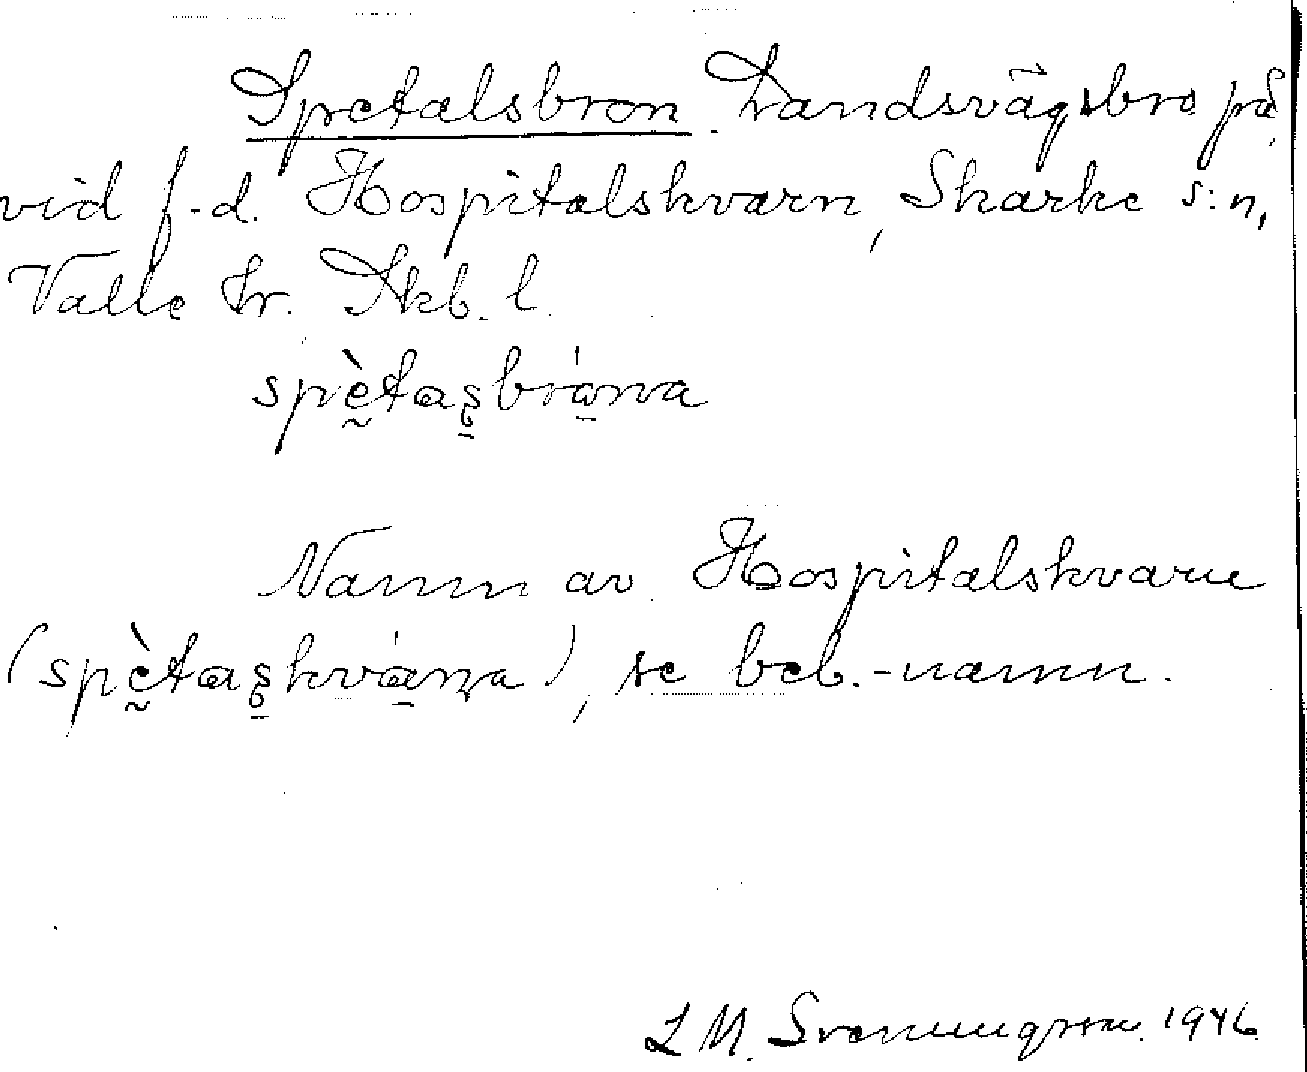 Spetalsbron. Landsvägsbro på
vid f.d. Hospitalskvarn, Skarke s:n,
Valle hr. Skb. l.
spètasbrána
Namn av Hospitalskvarn
(spètaskvána), se beb.-namn.
L M. Svenungsson. 1946